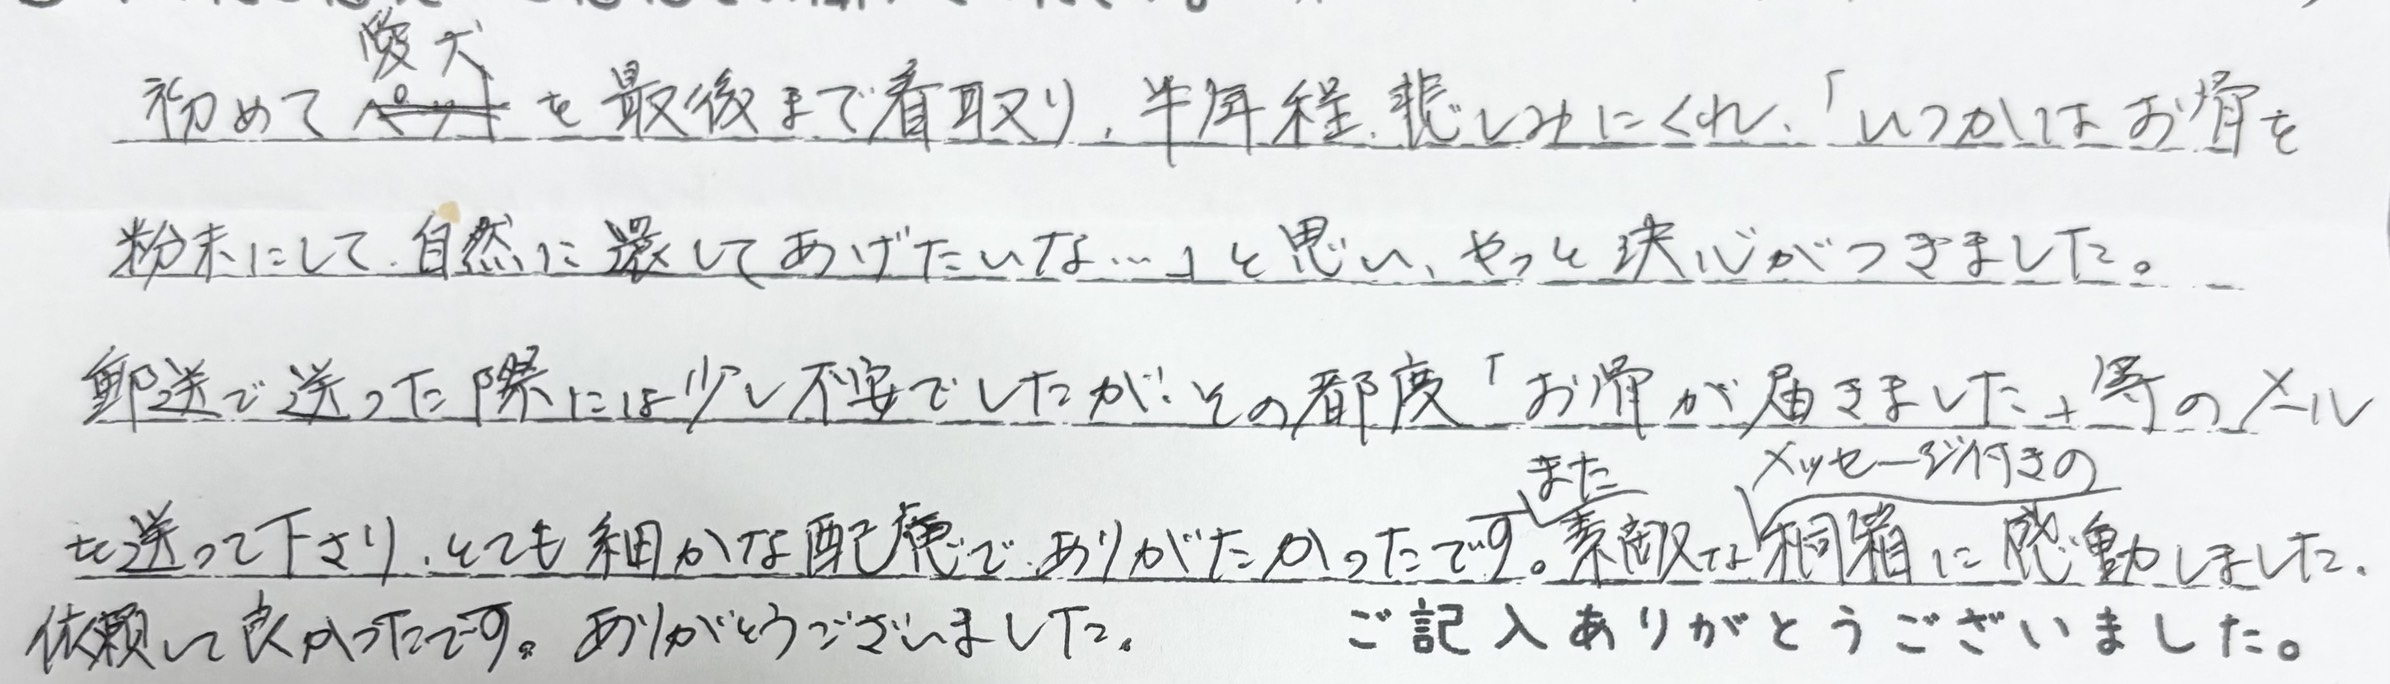 初めて愛犬を最後まで看取り、半年程、悲しみにくれ、「いつかはお骨を
粉末にして、自然に還してあげたいな…」と思い、やっと決心がつきました。
郵送で送った際には少し不安でしたが、その都度「お骨が届きました」等のメール
を送って下さり、とても細かな配慮で、ありがたかったです。また素敵なメッセージ付きの桐箱に感動しました。
依頼して良かったです。ありがとうございました。
ご記入ありがとうございました。